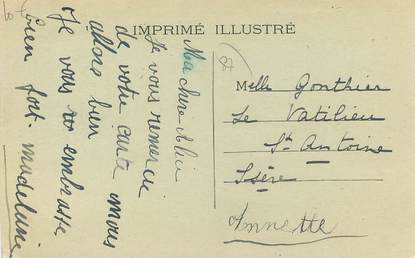 IMPRIMÉ ILLUSTRÉ
Ma chère Alice
Je vous remercie
de votre carte nous
allons bien
Je vous embrasse
bien fort. Madeleine
87
Melle Gonthier
Le Vatilieu
St Antoine
Isère
Annette